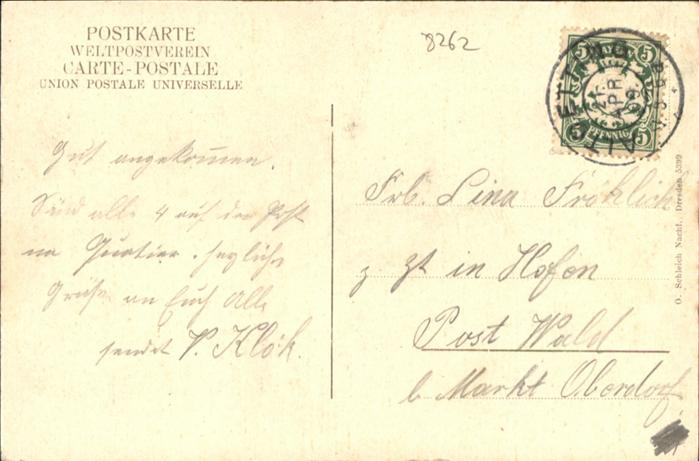 POSTKARTE
WELTPOSTVEREIN
CARTE-POSTALE
UNION POSTALE UNIVERSELLE
8262
5 5
BAYERN
5 PFENNIG 5
ALTÖTTING
21. APR
09.
Gut angekommen.
Sind alle 4 auf der Post
im Quartier. herzliche
Grüße an Euch Alle
sendet V. Klök.
Frl. Lina Fröhlich
z Zt in Hofen
Post Wald
b. Markt Oberdorf
O. Schleich Nachf., Dresden 5399